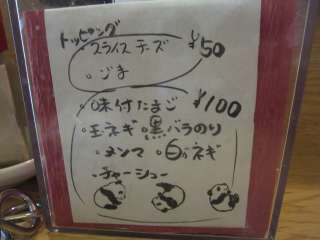 トッピング
スライスチーズ ¥50
。ごま
。味付たまご ¥100
。玉ネギ 。黒バラのり
。メンマ 。白ネギ
。チャーシュー